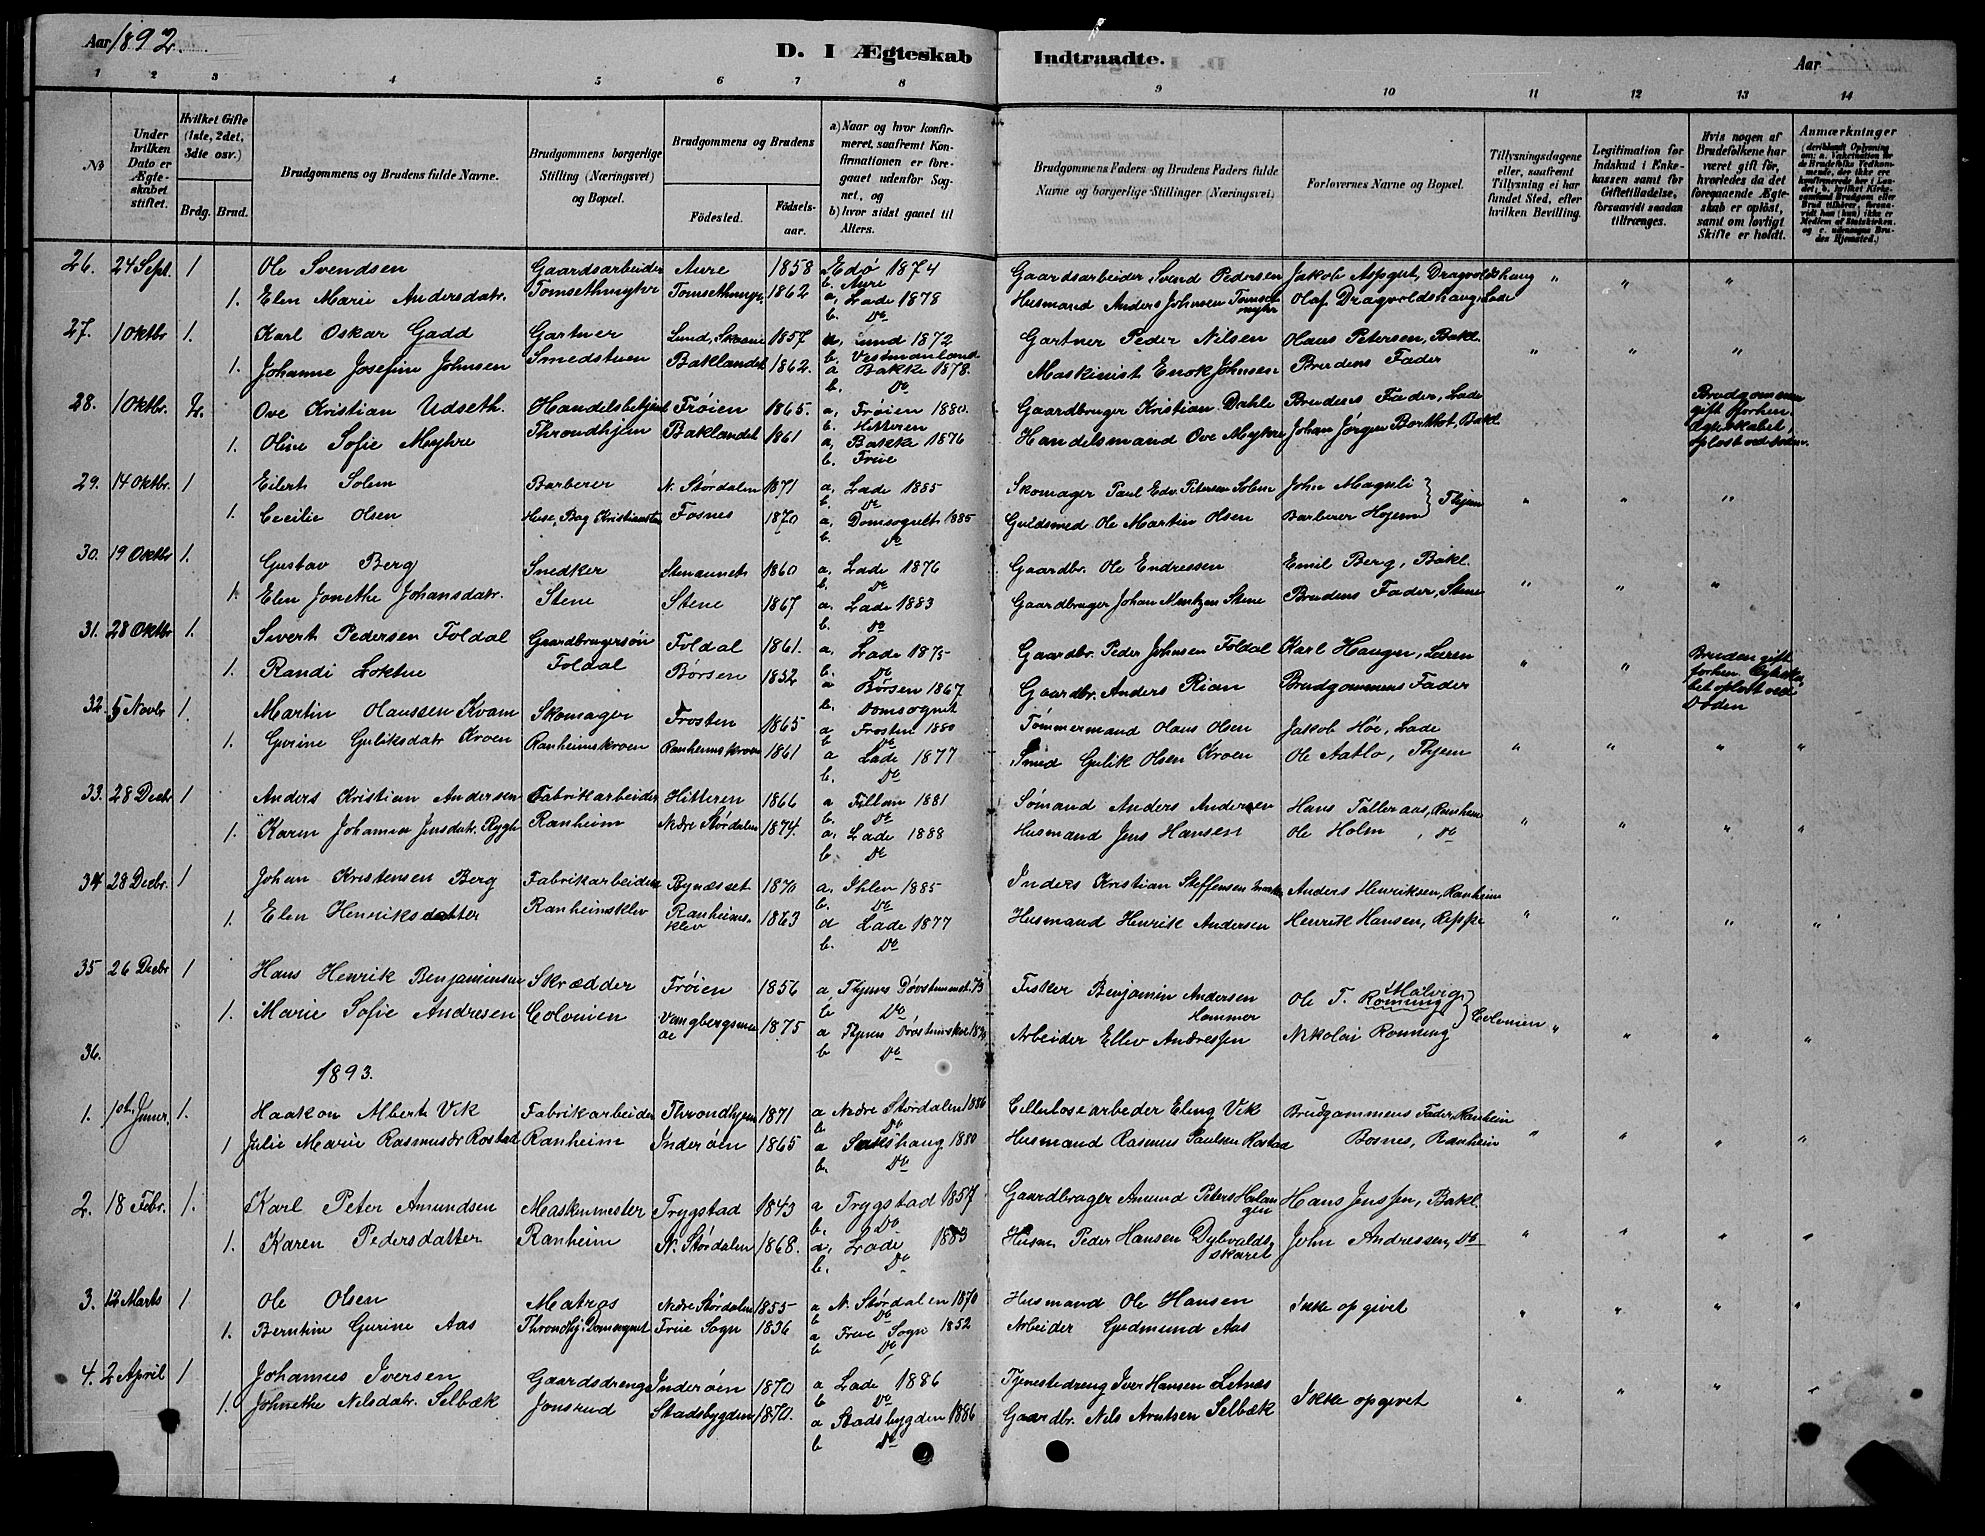 Aar 1892.
D. I Ægteskab Indtraadte.
Aar
1 2 3 4 5 6 7 8 9 10 11 12 13 14
No
Under hvilken Dato er Ægteskabet stiftet.
Hvilket Gifte (1ste, 2det, 3die osv.)
Brdg. Brud.
Brudgommens og Brudens fulde Navne.
Brudgommens borgerlige Stilling (Næringsvei) og Bopæl.
Brudgommens og Brudens
Födested.
Födselsaar.
a) Naar og hvor konfirmeret, saafremt Konfirmationen er foregaaet udenfor Sognet, og
b) hvor sidst gaaet til Alters.
Brudgommens Faders og Brudens Faders fulde Navne og borgerlige Stillinger (Næringsvei)
Forlovernes Navne og Bopæl.
Tillysningsdagene eller, saafremt Tillysning ei har fundet Sted, efter hvilken Bevilling.
Legitimation for Indskud i Enkekassen samt for Giftetilladelse, forsaavidt saadan tiltrænges.
Hvis nogen af Brudefolkene har været gift för, hvorledes da det foregaaende Ægteskab er oplöst, samt om lovligt Skifte er holdt.
Anmærkninger
26. 24 Sept. 1 Ole Svendsen Gaardsarbeider Aure 1858 Edø 1874 Gaardsarbeider Svend Pedersen Jakob Aspgut, Dragvoldshaug " " "
b. Aure
1. Elen Marie Andersdatr. Tomsethmyhr Tomsethmyr 1862 a, Lade 1878 Husmand Anders Johnsen Tomsethmyhr Olaf Dragvoldshaug, Lade
b. Do
27. 1 Oktbr 1. Karl Oskar Gadd Gartner Lund, Skaane 1857 a, Lund 1872 Gartner Peder Nilsen Olaus Petersen, Bakl.
b. Vestmanland
1. Johanne Josefine Johnsen Smedstuen Baklandet 1862. a Bakke 1878. Maskinist Enok Johnsen Brudens Fader " " "
b. Do
28. 1 Oktbr. 2. Ove Kristian Udseth. Handelsbetjent Frøien 1865. a, Frøien 1880. Gaardbruger Kristian Dahle Brudens Fader, Lade Brudgommen gift forhen Ægteskabet, oplöst ved Döden.
b. Hitteren
1. Oline Sofie Myhre Throndhjem Baklandet 1861 a, Bakke 1876 Handelsmand Ove Myhre Johan Jørgen Borthot, Bakl.
b. Freie
29. 14 Oktbr. 1 Eilert Solem Barberer N. Størdalen 1871 a, Lade 1885 Skomager Paul Edv. Petersen Solem John Moguli
b. Do
1. Cecilie Olsen Huse, Bag Kristiansten Fosnes 1870 a, Domsognet 1885 Guldsmed Ole Martin Olsen Barberer Hojem } Thjem " " "
b. Do
30. 19 Oktbr 1. Gustav Berg Snedker 1860 a, Lade 1876 Gaardbr. Ole Endressen Emil Berg, Bakl.
b. Do
1. Elen Jonethe Johansdatr. Stene Stene 1867 a. Lade 1883 Gaardbruger Johan Mentzen Stene Brudens Fader, Stene " " "
b. Do
31. 28 Oktbr 1. Sivert Pedersen Foldal Gaardbrugersön Foldal 1861. a, Lade 1875 Gaardbr. Peder Johnsen Foldal Karl Haugen, Leren Bruden gift forhen Ægteskabet oplöst ved Döden
b. Do
1. Randi Loktu Foldal Børsen 1852 a Børsen 1867 Gaardbr. Anders Rian Brudgommens Fader " "
b. Domsognet
32. 5 Novbr 1. Martin Olaussen Kvam Skomager Frosten 1865 a Frosten 1880 Tömmermand Olaus Olsen Jakob Höe, Lade
b Do
1. Gurine Guliksdatr Kroen Ranheimskroen Ranheimskroen 1861 a Lade 1877 Smed Gulik Olsen Kroen Ole Aatlo, Thjem " " " "
b. Do
33. 28 Decbr 1 Anders Kristian Andersen Fabrikarbeider Hitteren 1866 a Fillan 1881 Sømand Anders Andersen Hans Talleraas, Ranheim
b. Do
1. Karen Johanna Jensdatr. Rygh Ranheim Nedre Størdalen 1874. a, Lade 1888 Husmand Jens Hansen Ole Holm, Do " " " "
b. Do
34 28 Decbr. 1 Johan Kristensen Berg Fabrikarbeider Bynæsset 1870 a. Ihlen 1885 Inders Kristian Steffensen Anders Henriksen, Ranheim
b. Do
1. Elen Henriksdatter Ranheimsklev Ranheimsklev 1863 a Lade 1877 Husmand Henrik Andersen Henrik Hansen, Reppe " " " "
b. Do
35 26 Decbr 1 Hans Henrik Benjaminsen Skrædder Frøien 1856 a Thjems Døvstummeinst. 73 Fisker Benjamin Andersen Hammer Ole T. Rönning
b Do
1. Marie Sofie Andresen Colonien 1875 a Thjems Arbeider Ellev Andressen Nikolai Rönning } Colonien " " " "
b Do
36.
1893.
1. 1ste Januar. 1. Haakon Albert Vik Fabrikarbeider Throndhjem 1871 a Nedre Størdalen 1886 Cellulosearbeder Eling Vik Brudgommens Fader, Ranheim
b Do
1 Julie Marie Rasmusdr Rostad Ranheim Inderøen 1865 a Salshaug 1880 Husmand Rasmus Paulsen Rostad Bosnes, Ranheim " " " "
b. Do
2. 18 Febr. 1. Karl Peter Amundsen Maskinmester Trygstad 1843 a Trygstad 1857 Gaardbruger Amund Peters Halangen Hans Jenssen, Bakl.
b. Do
1. Karen Pedersdatter Ranheim N. Størdalen 1868. a, Lade 1883 Husm. Peder Hansen Dybvaldsskaret John Andressen, Do " " " "
b. Do
3. 12 Marts 1 Ole Olsen Matros Nedre Størdalen 1855 a N. Størdalen 1870 Husmand Ole Hansen Ikke opgivet " " " "
b Do
1. Berntine Gurine Aas Throndhj. Domsognet Freie Sogn 1836 a Freie Sogn 1852 Arbeider Gudmund Aas
b Do
4. 2 April 1 Johannes Iversen Gaardsdreng Inderøen 1870 a Lade 1886 Tjenestedreng Iver Hansen Letnæs
b Do
1. Johnethe Nilsdatr. Selbæk Jonsrud Stadsbygden 1870. a Stadsbygden 1886 Gaardbr. Nils Arntsen Selbæk Ikke opgivet " " " "
b Do